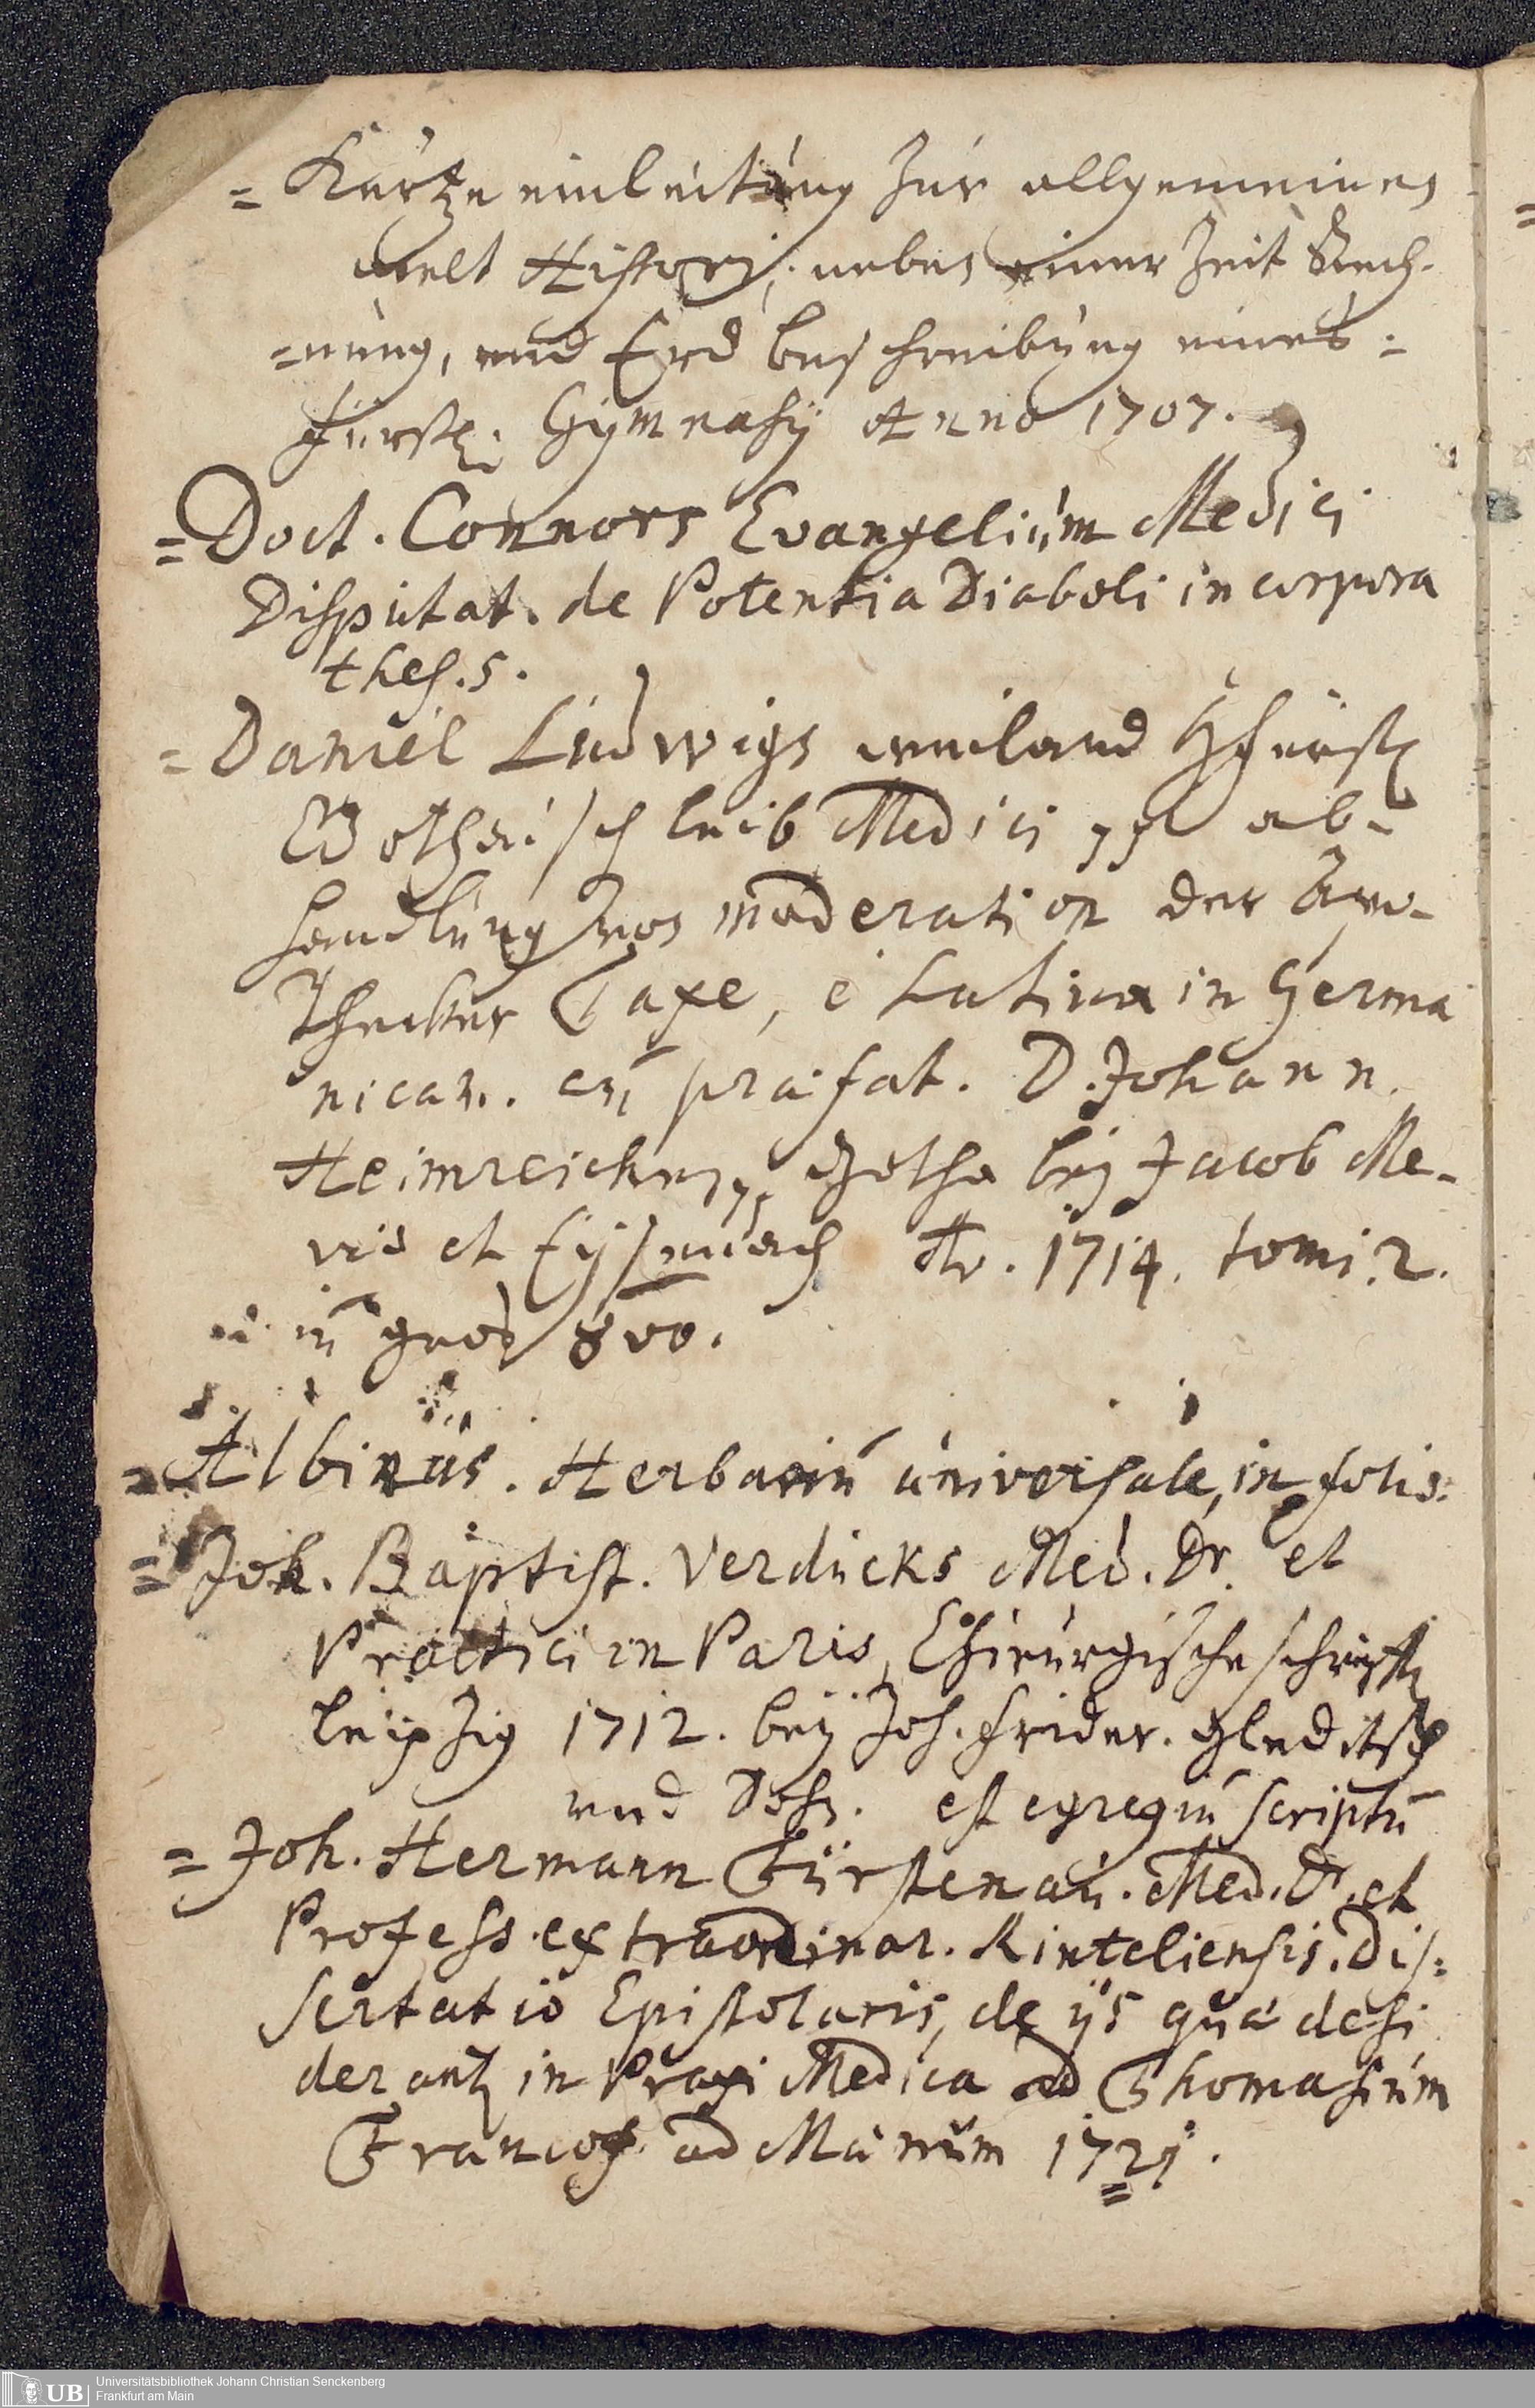 = Kurtze einleitung zur allgemeinen
welt Historj, neben einer Zeit Rech-
=nung, und Erd beschreibung eines =
fürstl. Gÿmnasÿ Anno 1707.
= Doct. Connors Evangeliüm Medici
Disputat. de Potentia Diaboli in corpora
thes. 5.
= Daniel Ludwigs weiland HFürstl
Gothaisch leib Medici ab-
handlung von moderation der Apo-
thecker Taxe, è Latina in Germa
nicam. cū præfat. D. Johann.
Heimreichen Gotha beÿ Jacob Me-
vis et Eÿsenach Ao. 1714. tomi. 2.
in groß 8vo.
= Albinus. Herbariū universale, in folio.
= Joh. Baptist. Verdücks Med. Dr. et
Practici in Paris, Chirurgische schrifften
leipzig 1712. beÿ Joh. frider. Gleditsch
und Sohn. est egregiū scriptū
= Joh. Hermann Fürstenau. Med. Dr. et
Profess. extraordinar. Rinteliensis. Dis=
sertatio Epistolaris, de ÿs quæ desi
derant in Praxi Medica ad Thomasium
Francof. ad Mænum 1721.
Universitätsbibliothek Johann Christian Senckenberg
Frankfurt am Main
UB